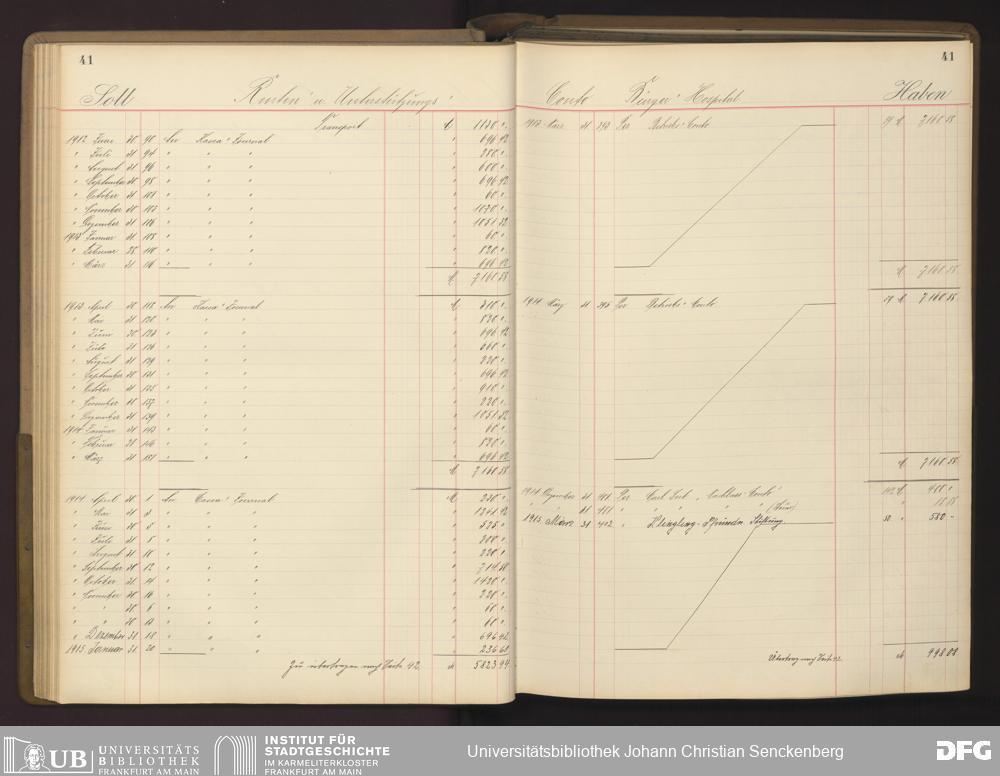 41
Soll Renten u. Unterstützungs
Transport M 1130 "
1912 Juni 30 90 An Kassa Journal " 696 92
" Juli 31 94 " " " " 280 "
" August 31 96 " " " " 600 "
" September 30 98 " " " " 696 92
" October 31 101 " " " " 60 "
" November 30 103 " " " " 1070 "
" Dezember 31 106 " " " " 1051 32
1913 Januar 31 108 " " " " 60 "
" Februar 28 110 " " " " 820 "
" März 31 116 " " 696 92
M 7160 58
1913 April 30 118 An Kassa Journal M 310 "
" Mai 31 120 " " " " 820 "
" Juni 30 123 " " " " 696 92
" Juli 31 126 " " " " 660 "
" August 31 129 " " " " 220 "
" September 30 131 " " " " 696 92
" October 31 135 " " " " 910 "
" November 30 137 " " " " 220 "
" Dezember 31 139 " " " " 1051 32
1914 Januar 31 143 " " " " 60 "
" Februar 28 146 " " " " 820 "
" März 31 151 " " " 696 92
M 7160 58
1914 April 30 1 An Cassa Journal M 230 "
" Mai 31 3 " " " " 1241 92
" Juni 30 5 " " " " 525 "
" Juli 31 8 " " " " 300 "
" August 31 10 " " " " 220 "
" September 30 12 " " " " 714
" October 31 14 " " " " 1420 "
" November 30 16 " " " " 220 "
" " 30 6 " " " " 60 "
" " 30 " " " " 60 "
" Dezember 31 18 " " " " 696 92
1915 Januar 31 20 " " " 236 60
Zu übertragen nach Seite 42. M 5823 94
41
Conto Bürger Hospital Haben
1913 März 31 393 Per Betriebs Conto M 7160 58
M 7160 58
1914 März 31 395 Per Betriebs Conto M 7160 58
M 7160 58
1914 Dezember 31 Per Carl Nachlass Conto M 400 "
" " " " "
1915 März 31 402 " Stiftung 52 " 580 -
Übertrag nach Seite 42. M 998 08
UB UNIVERSITÄTS
BIBLIOTHEK
FRANKFURT AM MAIN
INSTITUT FÜR
STADTGESCHICHTE
IM KARMELITERKLOSTER
FRANKFURT AM MAIN
Universitätsbibliothek Johann Christian Senckenberg
DFG